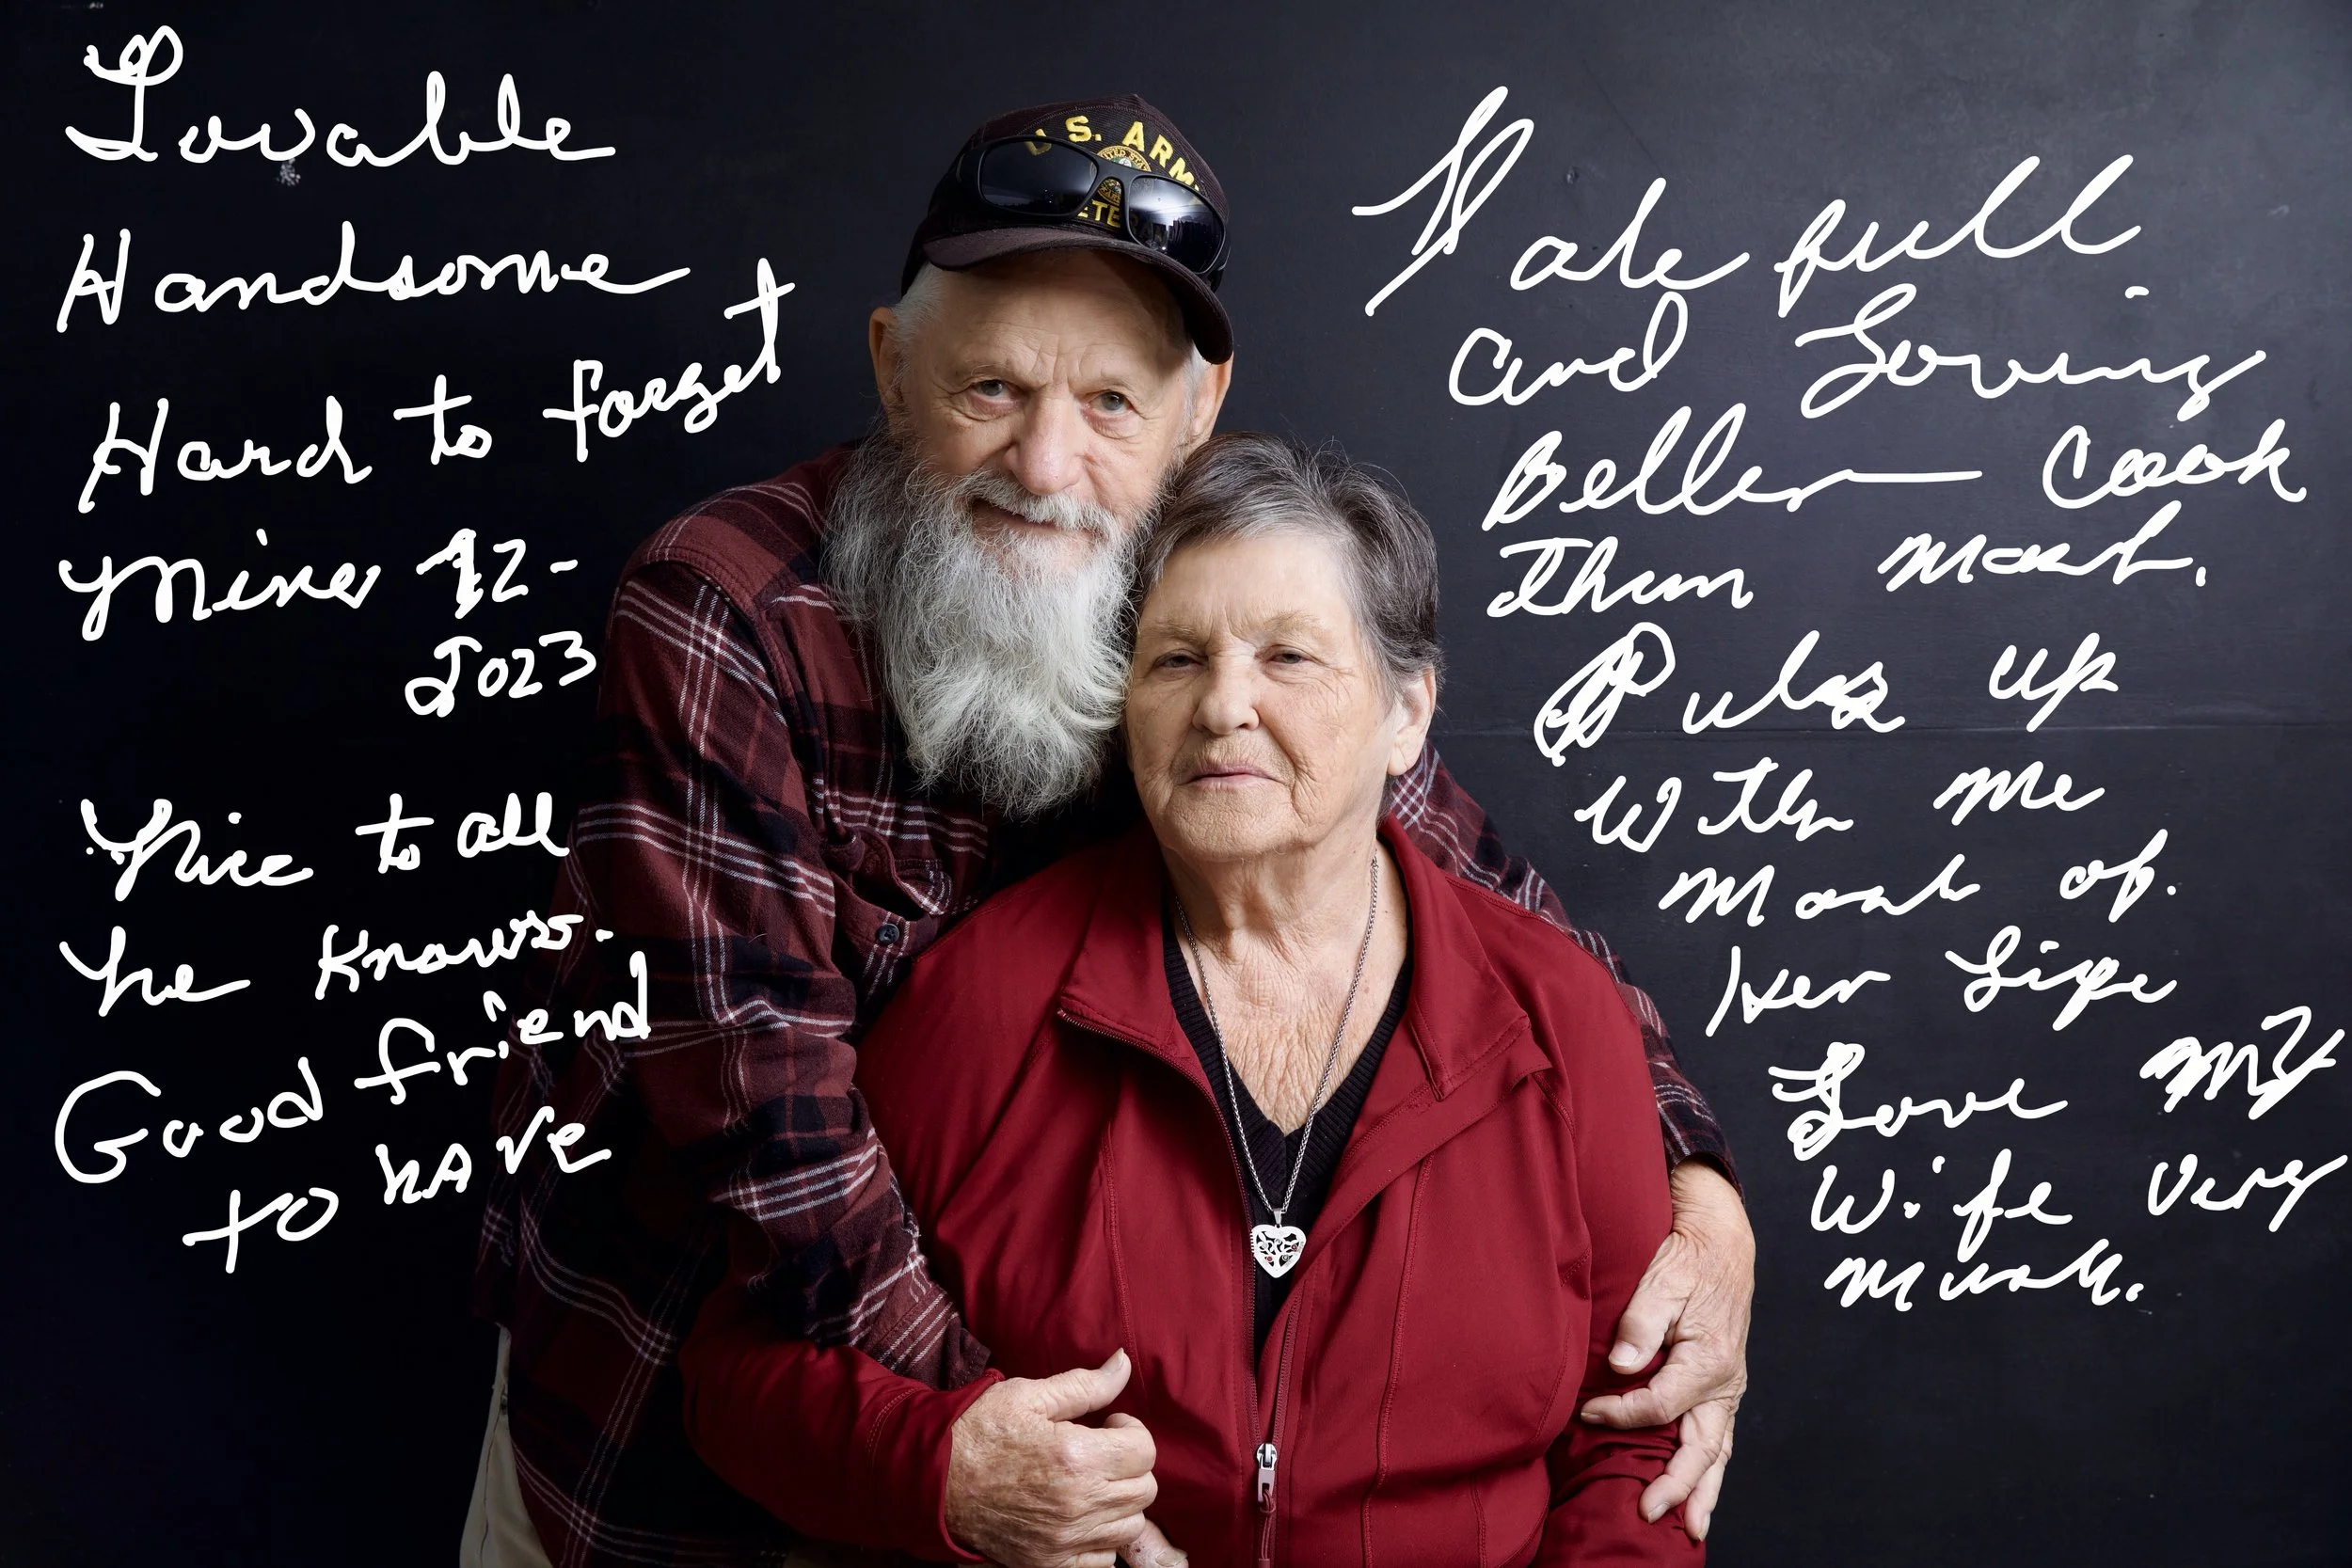 Lovable
Handsome
Hard to forget
Mine 92-
2023
Nice to all
he knows.
Good friend
to have
U.S. ARMY
full
and Loving
Better Cook
Than most.
Puls up
With me
Most of.
Her Life
Love my
Wife Very
Much.